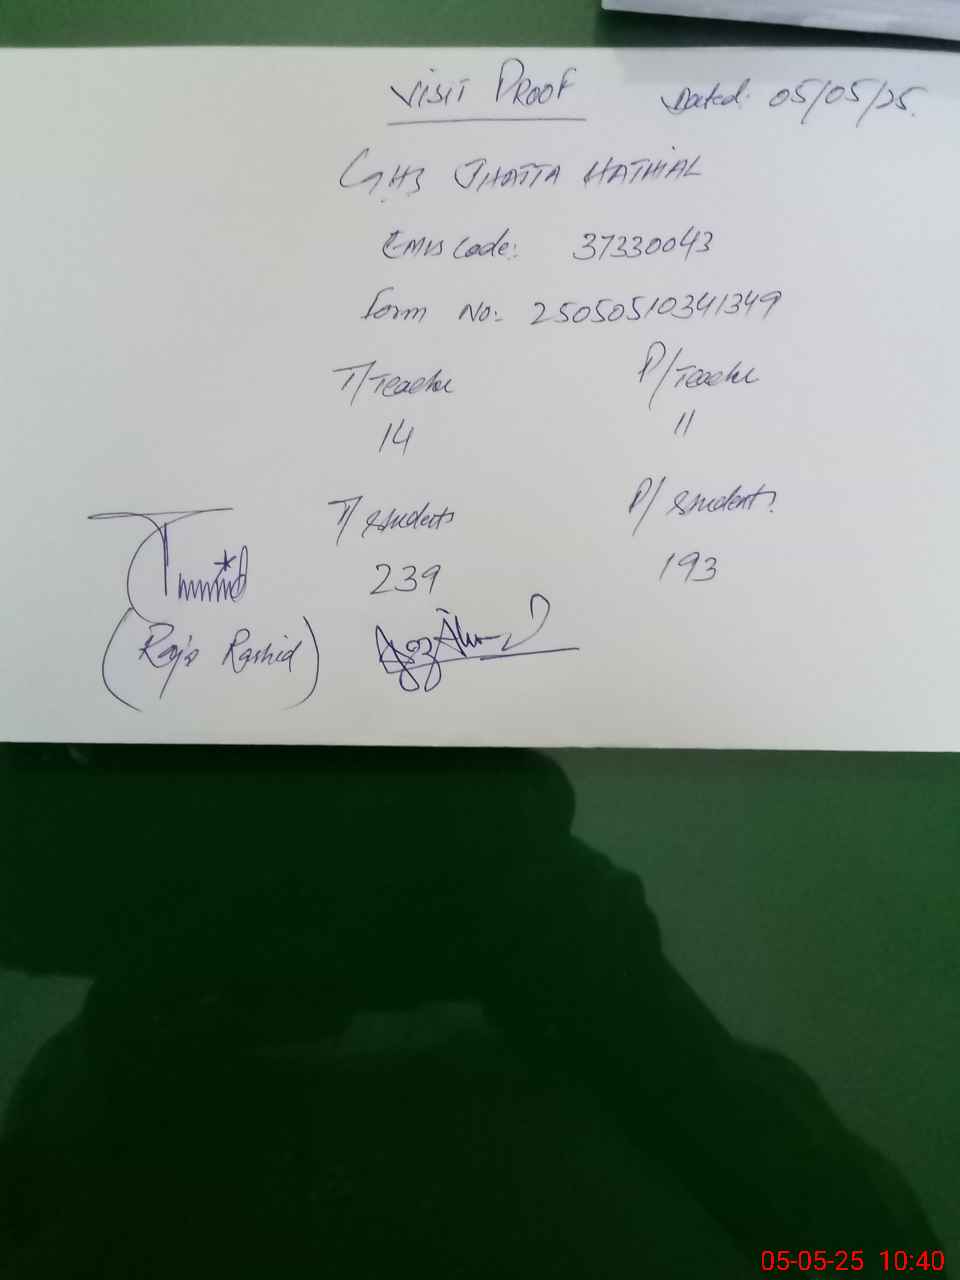 VISIT PROOF Dated: 05/05/25.
GHS JHATTA HATHIAL
Emis Code: 37330043
Form No:- 25050510341349
T/Teacher P/Teacher
14 11
T/students P/students
239 193
(Raja Rashid)
05-05-25 10:40